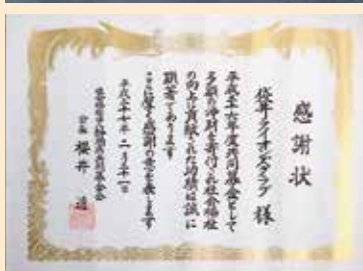 感謝状
桜井ライオンズクラブ 様
平成二十六年度共同募金として
多額の浄財を寄付され社会福祉
の向上に貢献された功績は誠に
顕著であります
ここに深く感謝の意を表します
平成二十七年二月二十一日
会長 櫻井